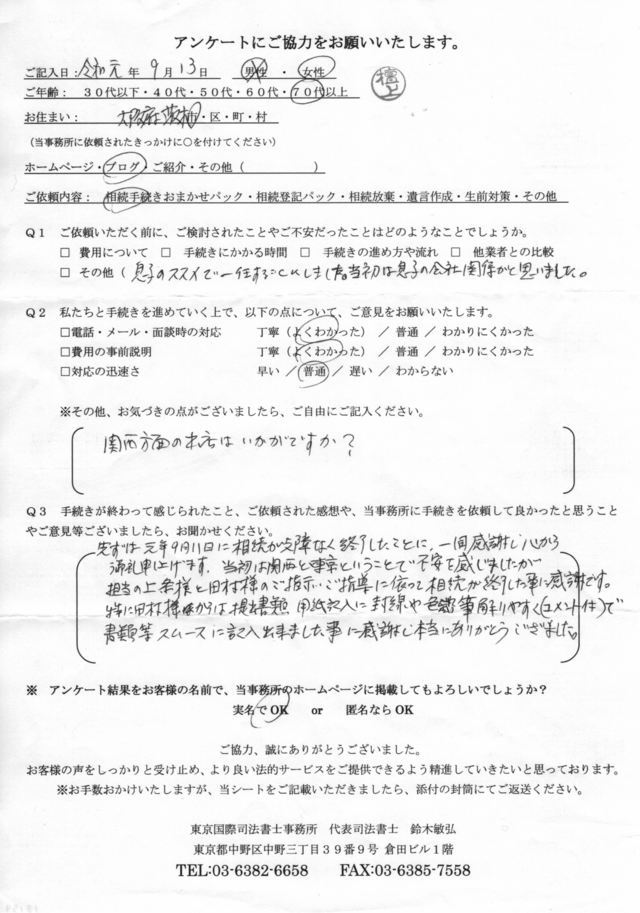 アンケートにご協力をお願いいたします。
ご記入日：令和元年9月13日　男性・女性
檀上
ご年齢：３０代以下・４０代・５０代・６０代・７０代以上
お住まい：大阪府 市・区・町・村
（当事務所に依頼されたきっかけに○を付けてください）
ホームページ・ブログ・ご紹介・その他（　　　　　）
ご依頼内容：相続手続きおまかせパック・相続登記パック・相続放棄・遺言作成・生前対策・その他
Ｑ１　ご依頼いただく前に、ご検討されたことやご不安だったことはどのようなことでしょうか。
□　費用について　□　手続きにかかる時間　□　手続きの進め方や流れ　□　他業者との比較
□　その他（息子のススメで一任することにしました。当初は息子の会社関係かと思いました。
Ｑ２　私たちと手続きを進めていく上で、以下の点について、ご意見をお願いいたします。
□電話・メール・面談時の対応　丁寧（よくわかった）　／　普通　／　わかりにくかった
□費用の事前説明　丁寧（よくわかった）　／　普通　／　わかりにくかった
□対応の迅速さ　早い　／　普通　／　遅い　／　わからない
※その他、お気づきの点がございましたら、ご自由にご記入ください。
関西方面の本店はいかがですか？
Ｑ３　手続きが終わって感じられたこと、ご依頼された感想や、当事務所に手続きを依頼して良かったと思うこと
やご意見等ございましたら、お聞かせください。
先ずは元年9月11日に相続が支障なく終了したことに、一同感謝し心から
御礼申上げます。当初は関西と東京ということで不安を感じましたが
担当の上条様と田村様のご指示・ご指導に依って相続が終了した事に感謝です。
特に田村様からは提出書類 用紙記入に封線や色鉛筆 解りやすく(コメント付)で
書類等スムースに記入出来ました事に感謝し本当にありがとうございました。
※　アンケート結果をお客様の名前で、当事務所のホームページに掲載してもよろしいでしょうか？
実名でOK　or　匿名ならOK
ご協力、誠にありがとうございました。
お客様の声をしっかりと受け止め、より良い法的サービスをご提供できるよう精進していきたいと思っております。
※お手数おかけいたしますが、当シートをご記載いただきましたら、添付の封筒にてご返送ください。
東京国際司法書士事務所　代表司法書士　鈴木敏弘
東京都中野区中野三丁目３９番９号 倉田ビル１階
TEL:03-6382-6658　FAX:03-6385-7558